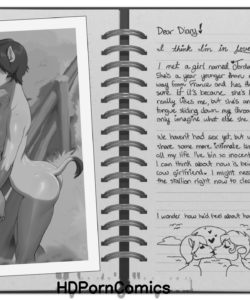 Dear Diary!
I think I'm in love
I met a girl named
She's a year younger than
way from France and has the
sure if it's because she's
really likes me, but she's
tongue sliding down my throat
only imagine what else she
We haven't had sex yet, but
share some more intimate
all my life I've bin so innocent
I can think about now is
cow girlfriend. I might need
the stallion right now to clear
I wonder how he'd feel about
HDPornComics